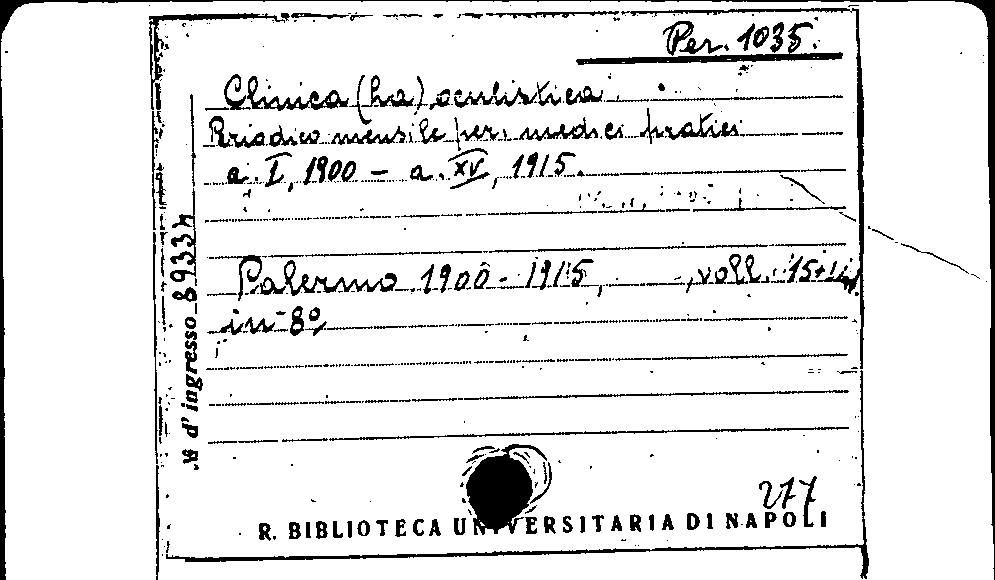 Per. 1035.
Clinica (La) oculistica.
Periodico mensile per i medici pratici
a. I, 1900 - a. XV, 1915.
Palermo 1900-1915, , voll. 15
in-8º
№ d'ingresso 8933
277
R. BIBLIOTECA UNIVERSITARIA DI NAPOLI